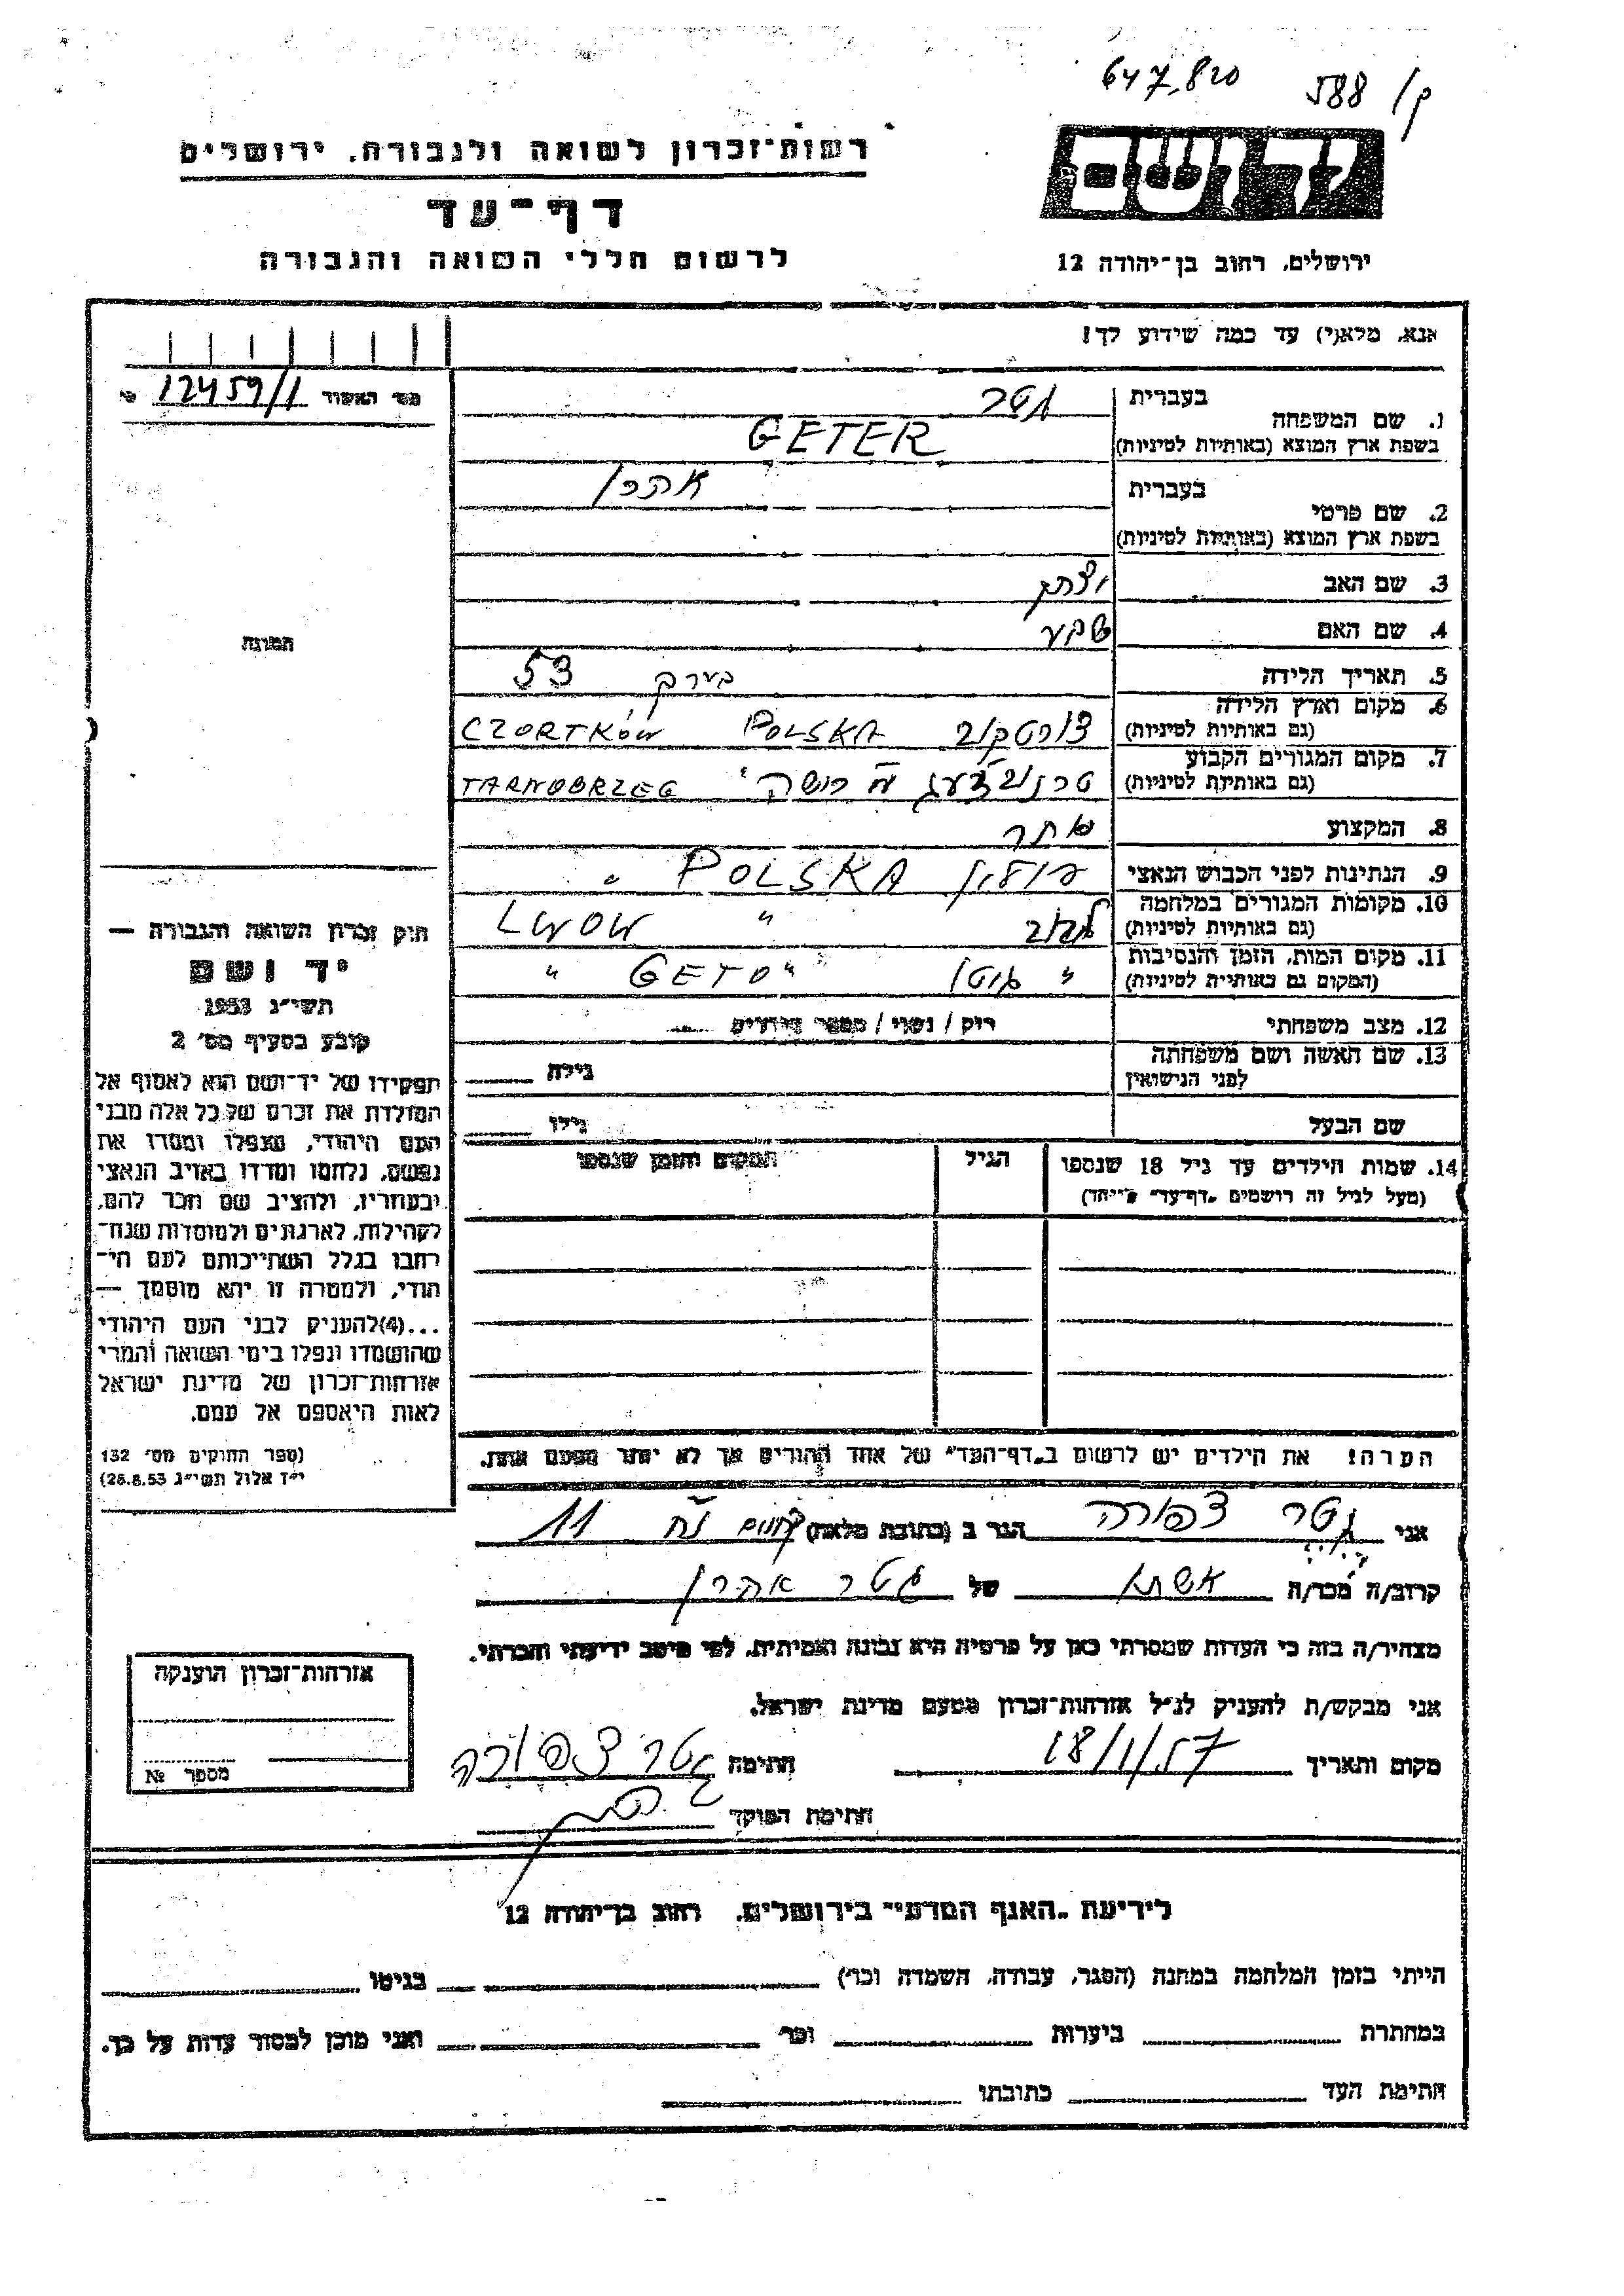 647,820 588 /ק
רשות־זכרון לשואה ולגבורה, ירושלים
יד ושם
דף־עד
לרשום חללי השואה והגבורה
ירושלים, רחוב בן־יהודה 12
אנא, מלא(י) עד כמה שידוע לך!
12459/1
1. שם המשפחה בעברית גטר
בשפת ארץ המוצא (באותיות לטיניות) GETER
2. שם פרטי בעברית אהרן
בשפת ארץ המוצא (באותיות לטיניות)
3. שם האב יצחק
4. שם האם
התמונה
5. תאריך הלידה בערך 53
6. מקום וארץ הלידה
(גם באותיות לטיניות) צורטקוב POLSKA CZORTKÓW
7. מקום המגורים הקבוע
(גם באותיות לטיניות) TARNOBRZEG
8. המקצוע סוחר
9. הנתינות לפני הכבוש הנאצי פולין POLSKA
10. מקומות המגורים במלחמה
(גם באותיות לטיניות) לבוב " LWOW
11. מקום המות, הזמן והנסיבות
(המקום גם באותיות לטיניות) " גיטו "GETO "
12. מצב משפחתי רוק / נשוי / מספר הילדים
13. שם האשה ושם משפחתה
לפני הנישואין גילה
שם הבעל גילו
14. שמות הילדים עד גיל 18 שנספו הגיל המקום והזמן שנספו
(מעל לגיל זה רושמים „דף־עד" מיוחד)
חוק זכרון השואה והגבורה —
יד ושם
תשי"ג 1953
קובע בסעיף מס' 2
תפקידו של יד־ושם הוא לאסוף אל
המולדת את זכרם של כל אלה מבני
העם היהודי, שנפלו ומסרו את
נפשם, נלחמו ומרדו באויב הנאצי
ובעוזריו, ולהציב שם וזכר להם,
לקהילות, לארגונים ולמוסדות שנח־
רבו בגלל השתייכותם לעם הי־
הודי, ולמטרה זו יהא מוסמך —
...(4)להעניק לבני העם היהודי
שהושמדו ונפלו בימי השואה והמרי
אזרחות־זכרון של מדינת ישראל
לאות היאספם אל עמם.
(ספר החוקים מס' 132
י"ז אלול תשי"ג 28.8.53)
הערה! את הילדים יש לרשום ב„דף־העד" של אחד ההורים אך לא יותר מפעם אחת.
אני גטר צפורה הגר ב (כתובת מלאה) 11
קרוב/ה מכר/ה אשתו של גטר אהרן
מצהיר/ה בזה כי העדות שמסרתי כאן על פרטיה היא נכונה ואמיתית, לפי מיטב ידיעתי והכרתי.
אני מבקש/ת להעניק לנ"ל אזרחות־זכרון מטעם מדינת ישראל.
מקום ותאריך 18/1/57 חתימה גטר צפורה
חתימת הפוקד
אזרחות־זכרון הוענקה
מספר №
לידיעת „האגף המדעי" בירושלים, רחוב בן־יהודה 12
הייתי בזמן המלחמה במחנה (הסגר, עבודה, השמדה וכו') בגיטו
במחתרת ביערות וכו' ואני מוכן למסור עדות על כך.
חתימת העד כתובתו